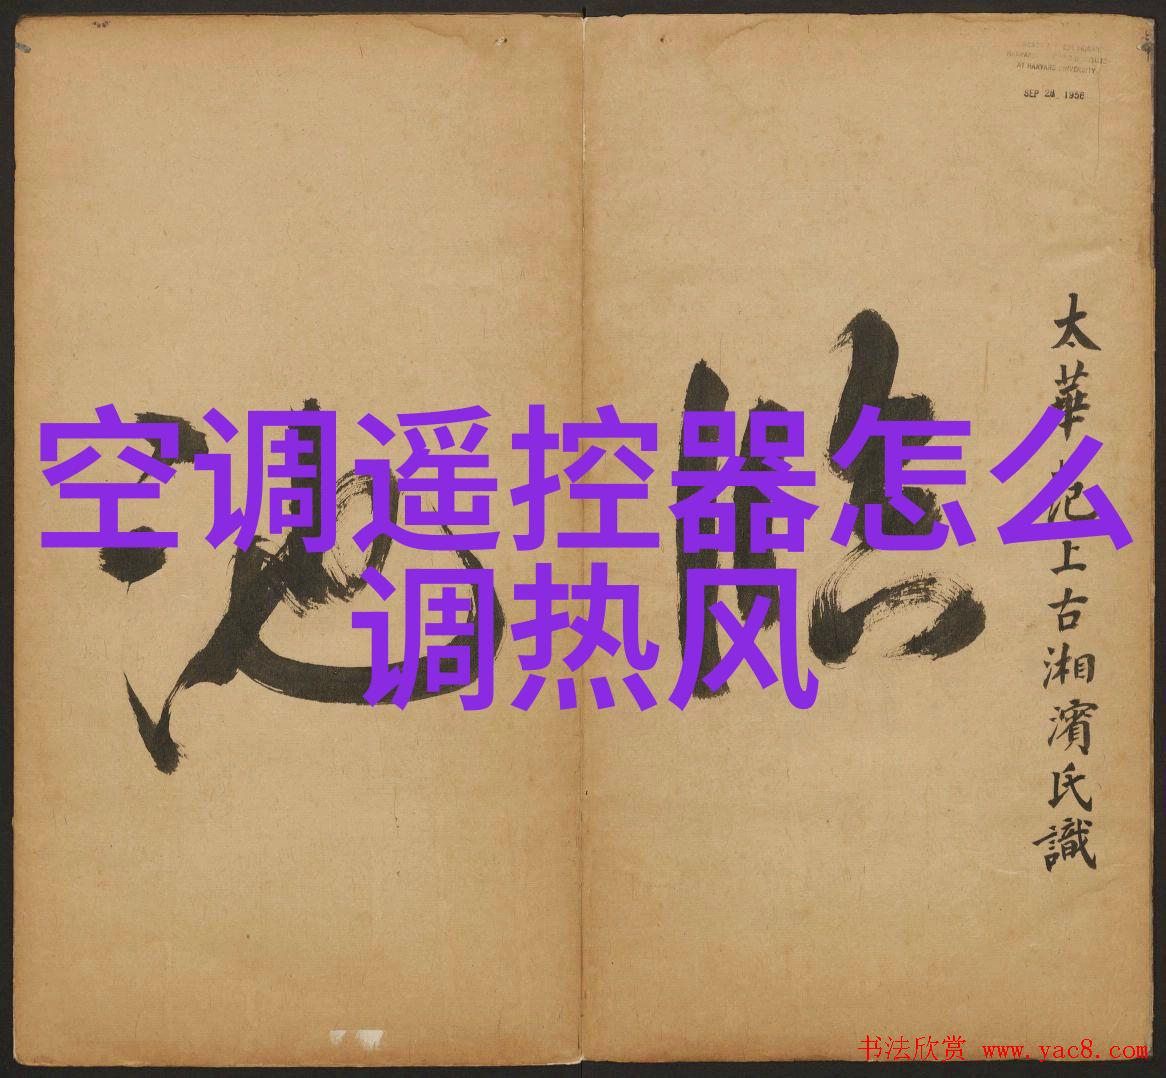 AT HARVARD UNIVERSITY
SEP 28 1956
空调遥控器怎么
调热风
临池
太華 上古湘濱氏識
书法欣赏 www.yac8.com